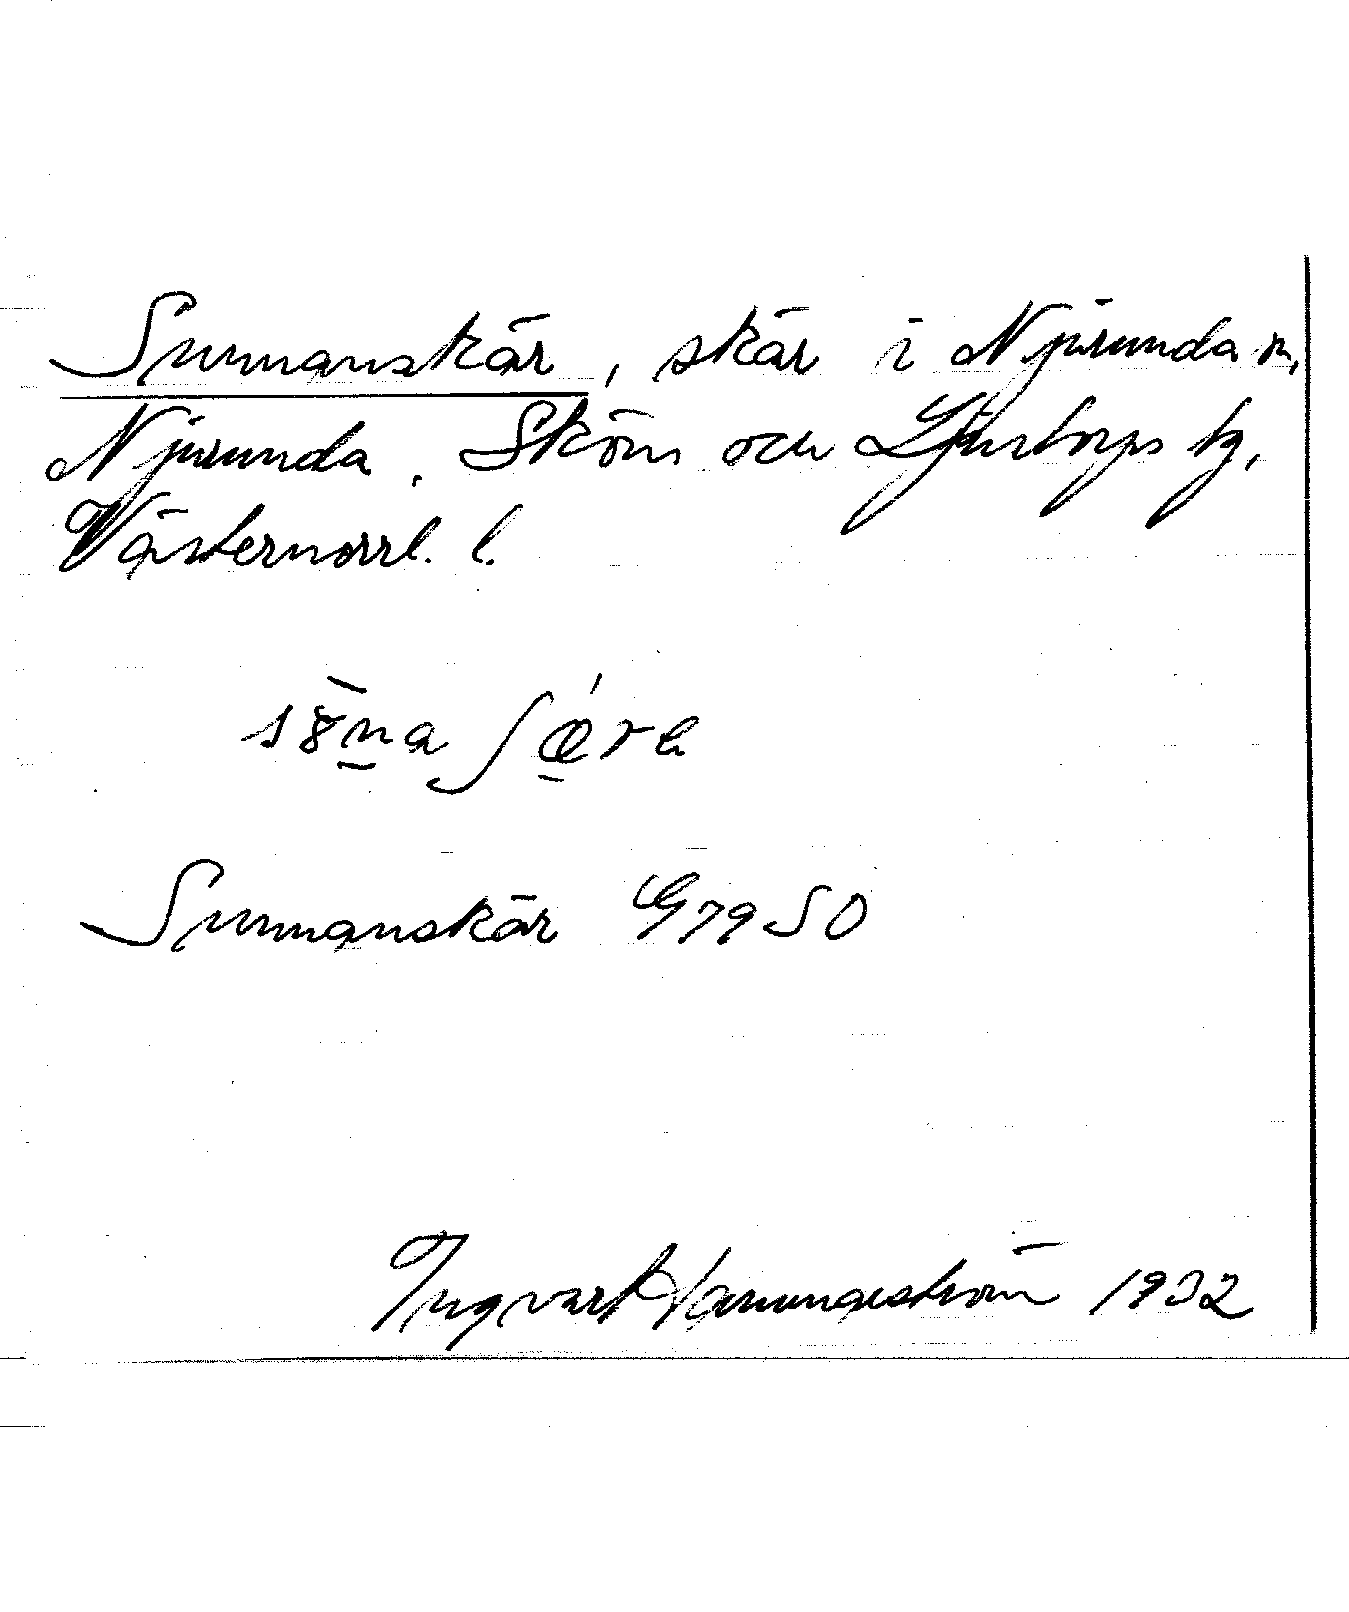 Sunnanskär, skär i Njurunda sn,
Njurunda, Sköns och Ljustorps tg,
Västernorrl. l.
Sunnanskär G79SO
Ingvar Hammarström 1932